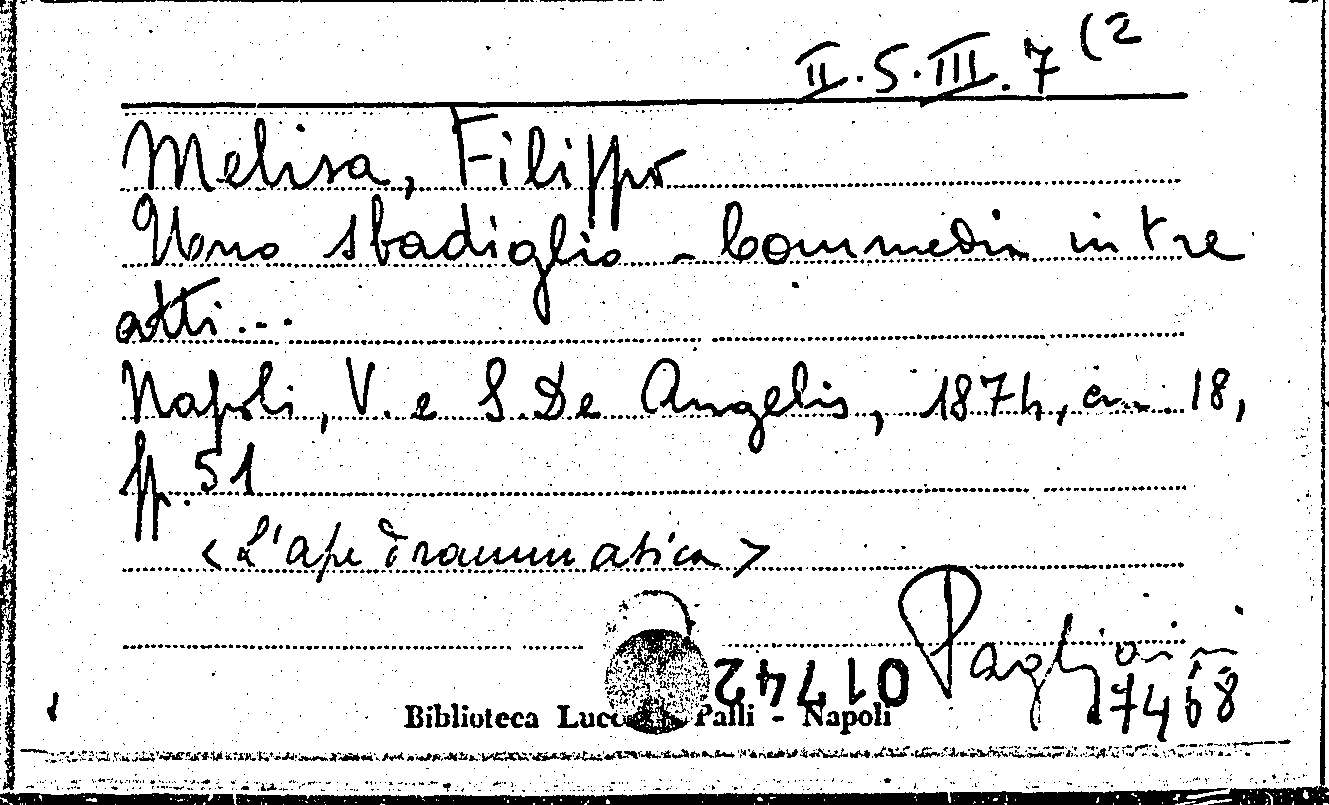 II.5.III.7(2
Melisa, Filippo
Uno sbadiglio - Commedia in tre
atti...
Napoli, V. e S. De Angelis, 1874, cm. 18,
pp. 51
<L'ape drammatica>
Pagliaini
01742
7468
Biblioteca Lucc Palli - Napoli